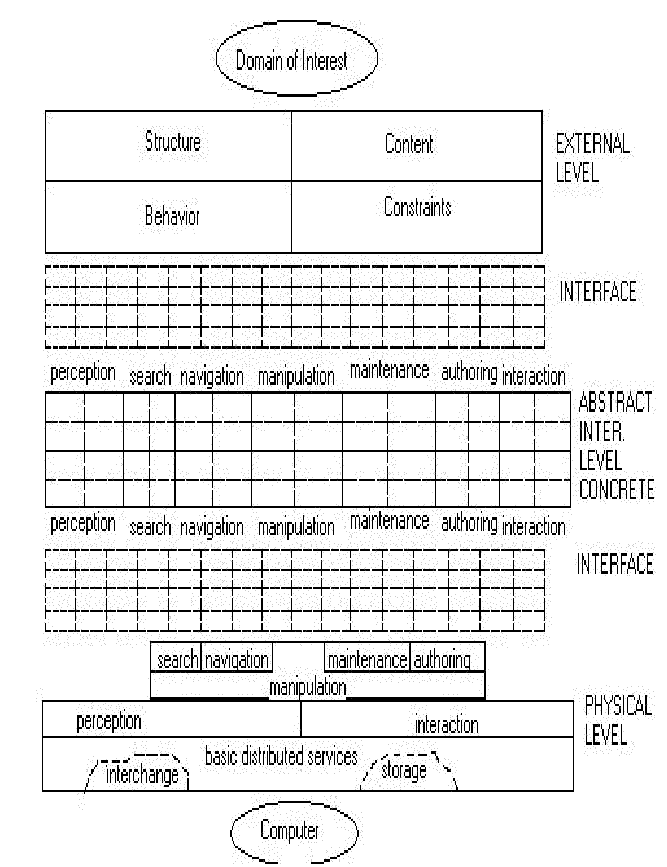 Domain of Interest
Structure Content
EXTERNAL
LEVEL
Behavior Constraints
INTERFACE
perception search navigation manipulation maintenance authoring interaction
ABSTRACT
INTER.
LEVEL
CONCRETE
perception search navigation manipulation maintenance authoring interaction
INTERFACE
search navigation maintenance authoring
manipulation
PHYSICAL
LEVEL
perception interaction
basic distributed services
interchange storage
Computer